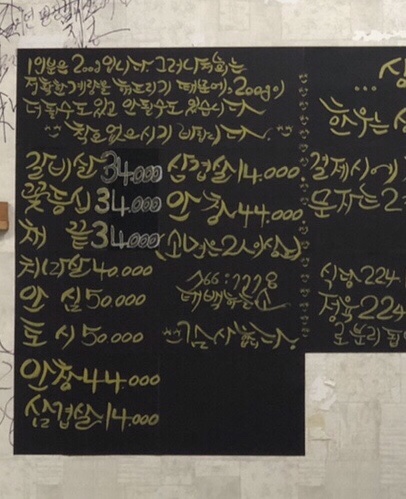 1인분은 200g입니다. 그러나 저희는
정확한 계량을 해드리기 때문에, 200g이
더 될수도 있고 안될수도 있습니다
참고 없으시기 바랍니다.
갈비살 34.000
꽃등심 34.000
채 끝 34.000
치마살 40.000
안 심 50.000
토 시 50.000
안창 44.000
삼겹살 14.000
삼겹살 14.000
안 창 44.000
2인이상)
태백
감사합니다.
상
...
한우는
결제시에
문자는 2
식당 224
정육 224
로 분리